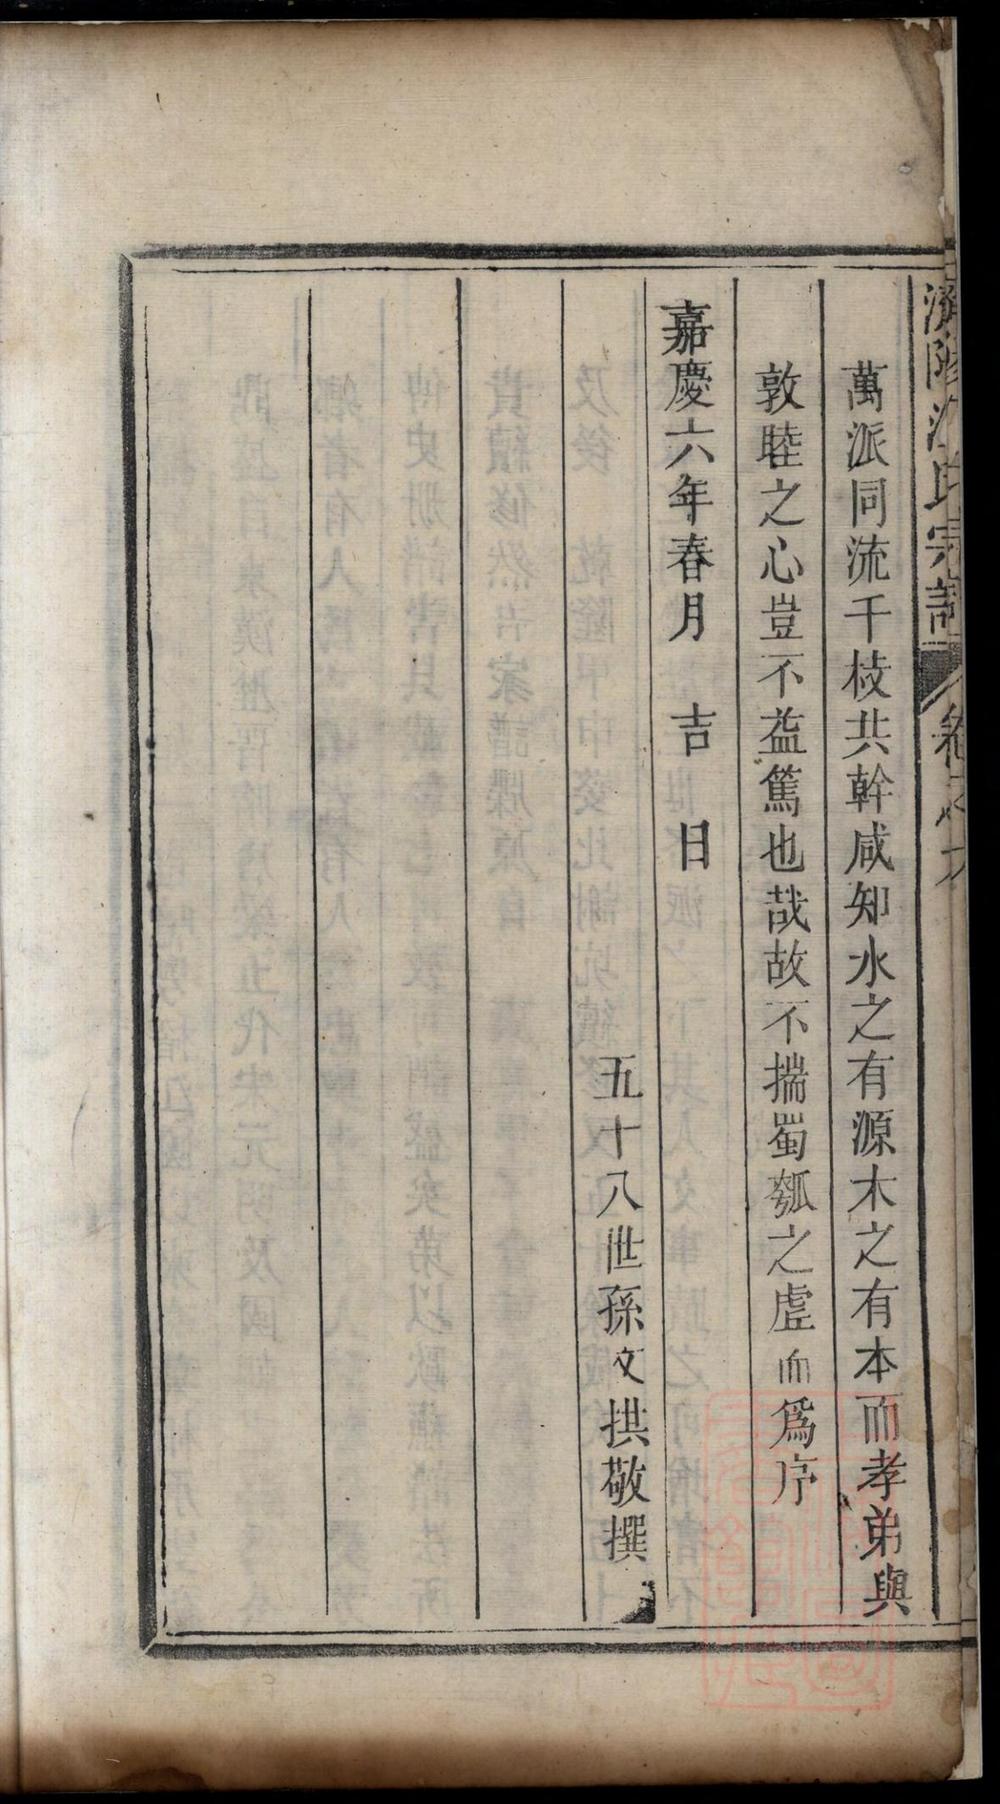 濟陽江氏宗譜
萬派同流千枝共幹咸知水之有源木之有本而孝弟與
敦睦之心豈不益篤也哉故不揣蜀瓠之虛而爲序
嘉慶六年春月 吉 日
五十八世孫文拱敬撰